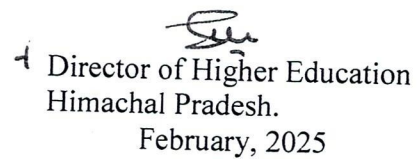 Director of Higher Education
Himachal Pradesh.
February, 2025